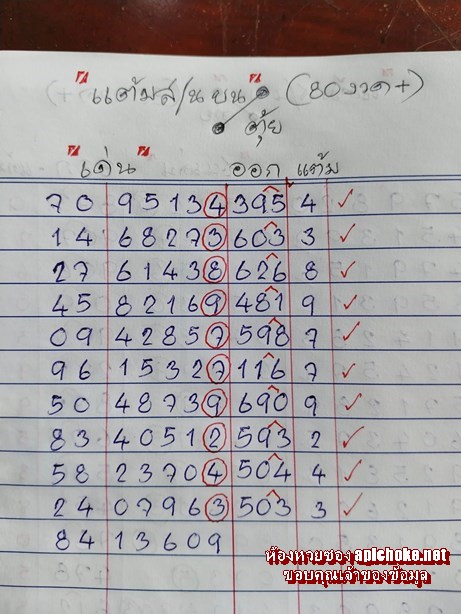 แต้มส/นบน (80งวด+)
ตุ้ย
เด่น ออก แต้ม
70 95134 395 4 ✓
14 68273 603 3 ✓
27 61438 626 8 ✓
45 82169 481 9 ✓
09 42857 598 7 ✓
96 15327 116 7 ✓
50 48739 690 9 ✓
83 40512 593 2 ✓
58 23704 504 4 ✓
24 07963 503 3 ✓
84 13609
ห้องหวยซอง apichoke.net
ขอบคุณเจ้าของข้อมูล